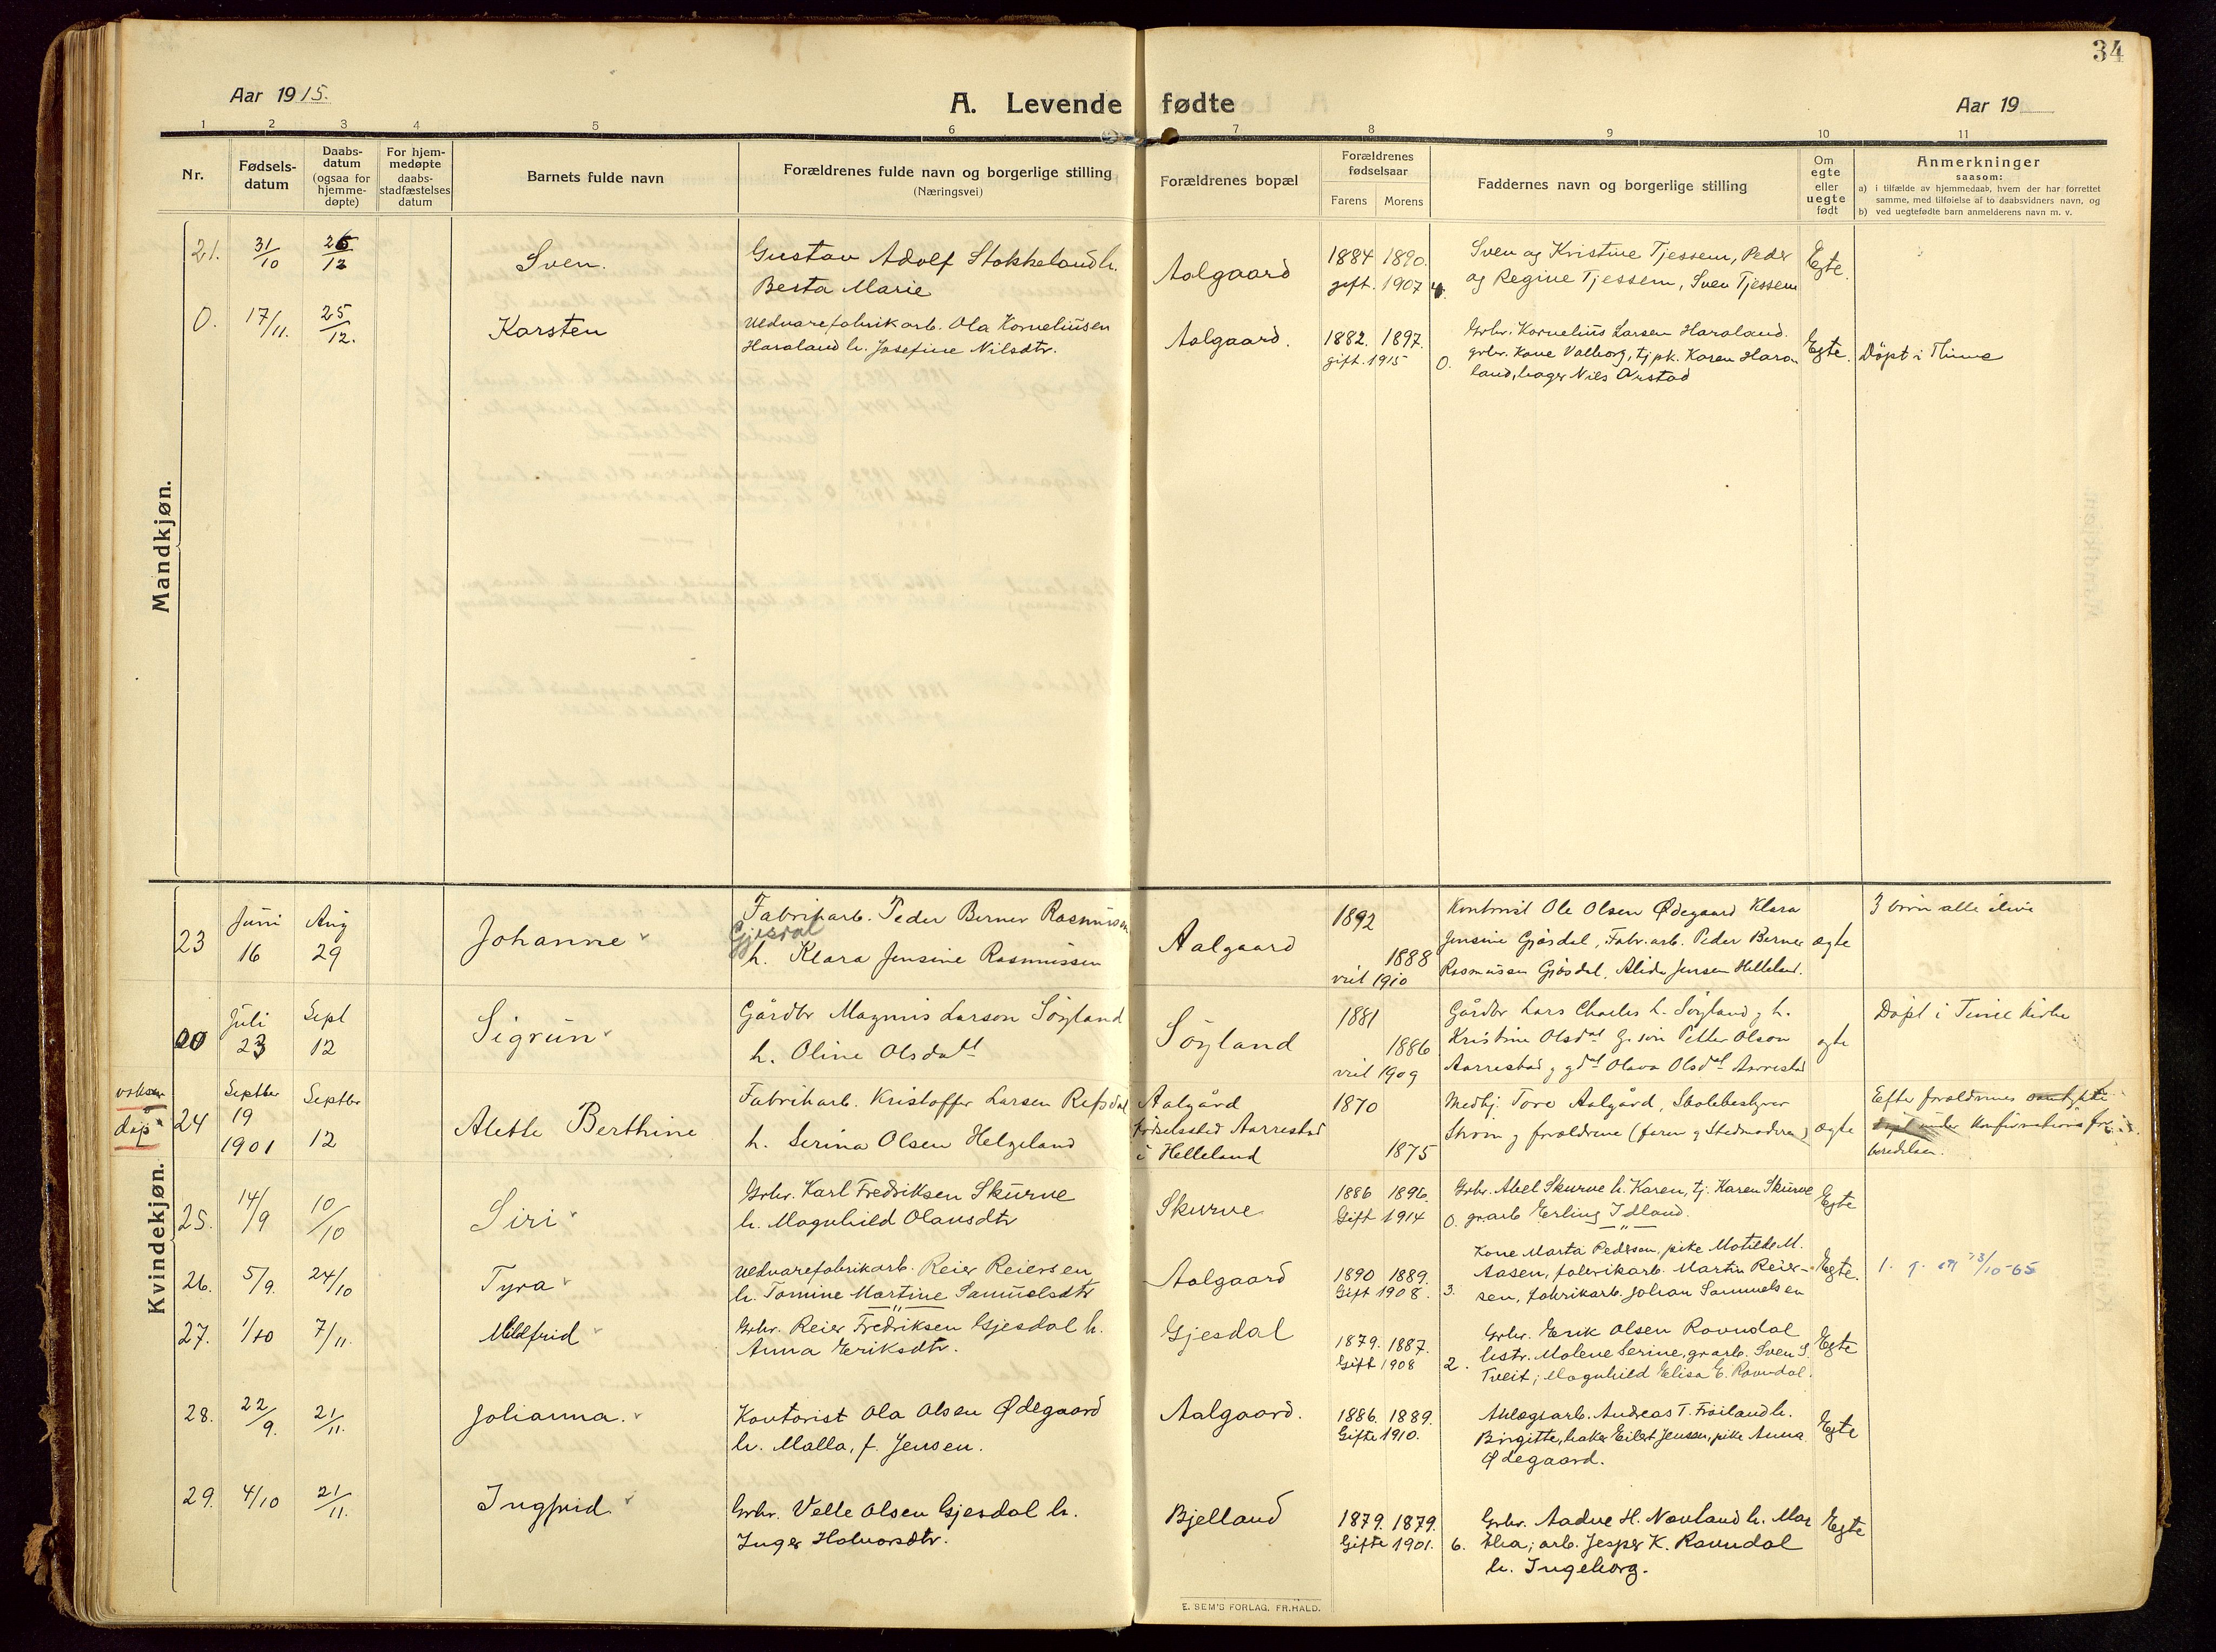 34
Aar 1915.
A. Levende fødte
Aar 19
1 2 3 4 5 6 7 8 9 10 11
Nr.
Fødsels-
datum
Daabs-
datum
(ogsaa for
hjemme-
døpte)
For hjem-
medøpte
daabs-
stadfæstelses
datum
Barnets fulde navn
Forældrenes fulde navn og borgerlige stilling
(Næringsvei)
Forældrenes bopæl
Forældrenes
fødselsaar
Farens Morens
Faddernes navn og borgerlige stilling
Om
egte
eller
uegte
født
Anmerkninger
saasom:
a) i tilfælde av hjemmedaab, hvem der har forrettet
samme, med tilføielse af to daabsvidners navn, og
b) ved uegtefødte barn anmelderens navn m. v.
Mandkjøn.
21. 31/10 26/12 Sven.
Gustav Adolf Stokkeland h.
Berta Marie
Aalgaard
1884 1890.
gift. 1907 4.
Sven og Kristine Tjessem, Peder
og Regine Tjessem, Sven Tjessem
Egte.
0. 17/11. 25/12. Karsten
Uldvarefabrikarb. Ola Korneliusen
Haraland h. Josefine Nilsdtr.
Aalgaard.
1882. 1897.
gift. 1915 0.
Grbr. Kornelius Larsen Haraland.
grbr. Kone Valborg, tj.pk. Karen Hara
land, bager Nils Arstad
Egte.
Döpt i Thime
Kvindekjøn.
23
Juni
16
Aug
29
Johanne
Fabrikarb. Peder Berner Rasmussen
Gjesdal
h. Klara Jensine Rasmussen
Aalgaard
1892
1888
viet 1910
Kontorist Ole Olsen Ødegaard Klara
Jensine Gjösdal, Fabr.arb. Peder Berner
Rasmussen Gjösdal, Alida Jensen Helleland.
ægte
3 börn alle ilive
00
Juli
23
Sept
12
Sigrun
Gårdbr Magnus Larson Söyland
h. Oline Olsdatt
Söyland
1881
1886
viet 1909
Gårdbr Lars Charles L. Söyland g h.
Kristine Olsdat G. sön Petter Olson
Aarrestad g gdat Olava Olsdat Aarrestad
egte
Döpt i Time Kirke
voksen
dåp
24
Septbr
19
1901
Septbr
12
Alette Berthine
Fabrikarb. Kristoffer Larsen Refsdal
h. Serina Olsen Helgeland
Aalgård
Fødselssted Aarrestad
i Helleland
1870
1875
Medhj. Tore Aalgård, Skolebestyrer
Ström g forældrene (faren g Stedmoderen)
ægte
Efter forældrenes samtykke
döpt under Konfirmationsfor
beredelsen.
25. 14/9 10/10 Siri
Grbr. Karl Fredriksen Skurve
h. Magnhild Olausdtr
Skurve
1886 1896.
Gift 1914 0.
Grbr. Abel Skurve h. Karen, tj. Karen Skurve
gr.arb Erling Idland.
Egte
26. 5/9. 24/10 Tyra
Uldvarefabrikarb. Reier Reiersen
h. Tomine Martine Samuelsdtr
Aalgaard
1890 1889.
Gift 1908. 3.
Kone Marta Pedersen, pike Matilde M.
Aasen, fabrikarb. Martin Reier-
sen, fabrikarb. Johan Samuelsen
Egte.
27. 1/10 7/11. Mildfrid
Grbr. Reier Fredriksen Gjesdal h.
Anna Eriksdtr.
Gjesdal
1879. 1887.
Gift 1908 2.
Grbr. Erik Olsen Ravndal
hstr. Malene Serine, gr.arb. Sven S.
Tveit; Magnhild Elisa E. Ravndal.
Egte
28. 22/9. 21/11. Johanna.
Kontorist Ola Olsen Ødegaard
h. Malla, f. Jensen.
Aalgaard.
1886. 1889.
Gifte 1910.
Anlægsarb. Andreas T. Fröiland h.
Birgitte, baker Eilert Jensen, pike Anna
Ødegaard.
Egte
29. 4/10 21/11. Ingfrid
Grbr. Velle Olsen Gjesdal h.
Inger Halvorsdtr.
Bjelland
1879. 1879.
Gifte 1901. 6.
Grbr. Aadne H. Nævland h. Mar
tha; arb. Jesper K. Ravndal
h. Ingeborg.
Egte
E. SEM'S FORLAG. FR.HALD.